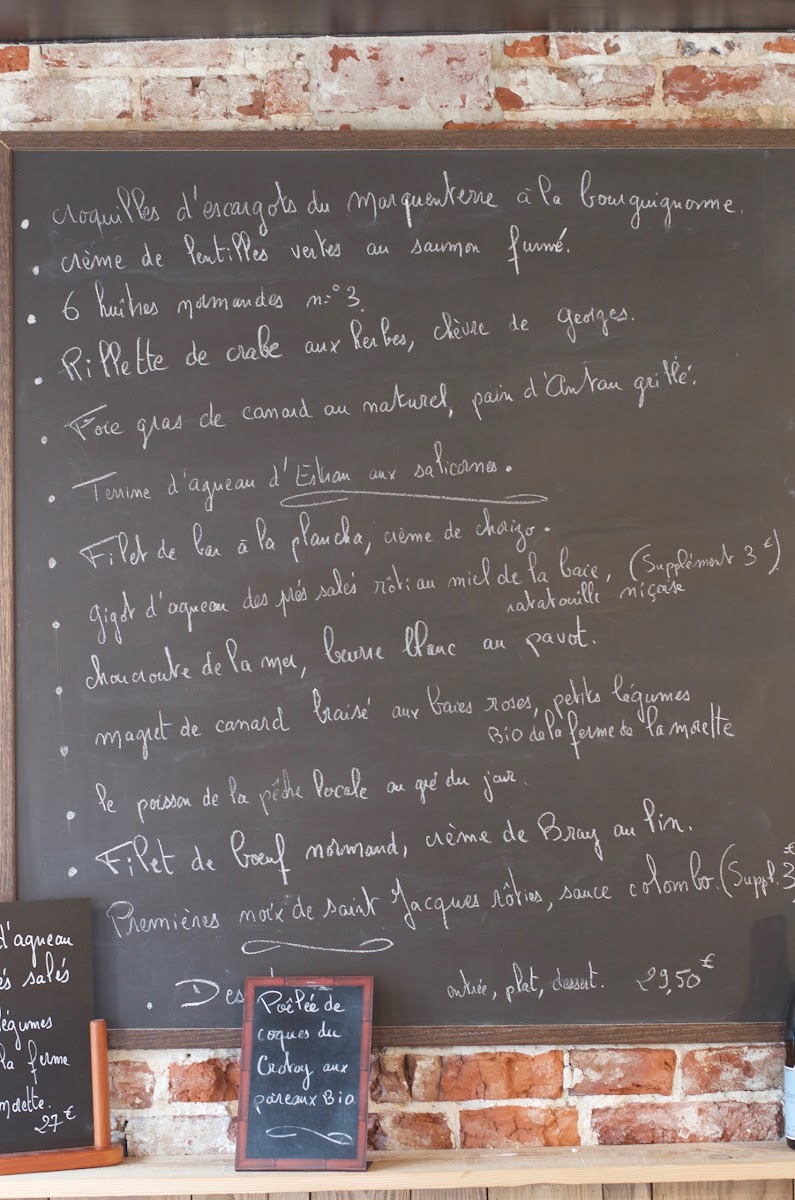 croquilles d'escargots du Marquenterre à la bourguignonne.
crème de lentilles vertes au saumon fumé.
6 huîtres normandes n°3.
Rillette de crabe aux herbes, chèvre de Georges.
Foie gras de canard au naturel, pain d'Antan grillé.
Terrine d'agneau d'Estran aux salicornes.
Filet de bar à la plancha, crème de chorizo.
gigot d'agneau des prés salés rôti au miel de la baie, (Supplément 3€)
ratatouille niçoise
choucroute de la mer, beurre blanc au pavot.
magret de canard braisé aux baies roses, petits légumes
Bio de la ferme de la morette
le poisson de la pêche locale au gré du jour.
Filet de bœuf normand, crème de Bray au lin.
Premières noix de saint Jacques rôties, sauce colombo. (Suppl. 3€
Des
entrée, plat, dessert. 29,50€
d'agneau
és salés
légumes
la ferme
morette.
27€
Poêlée de
coques du
Crotoy aux
poireaux Bio